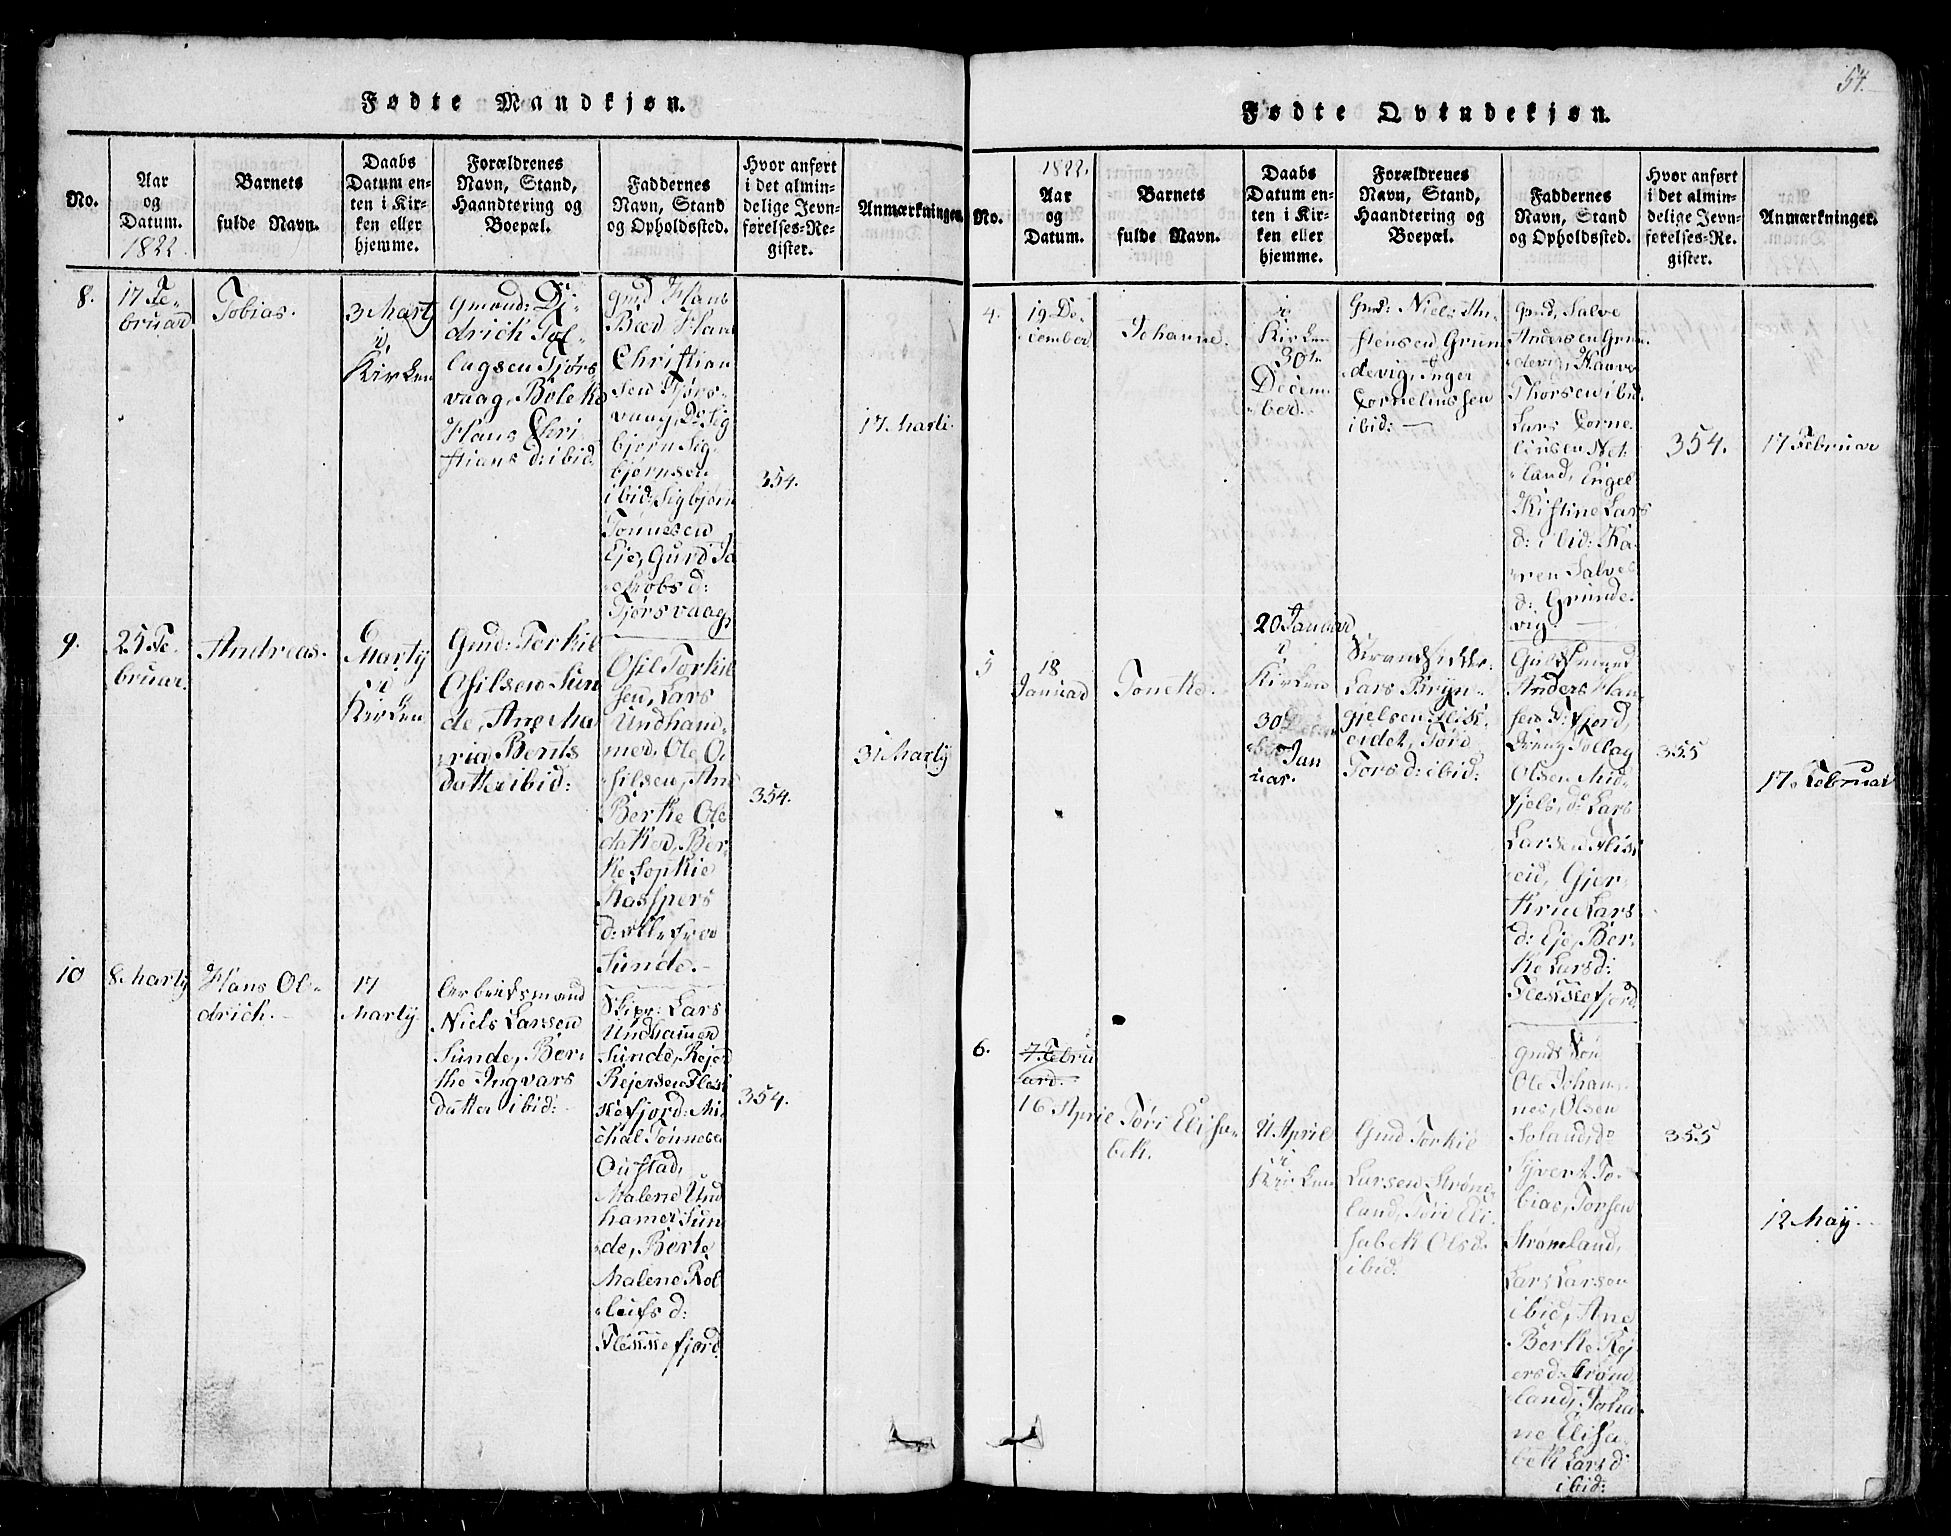 Fødte Mandkjøn.
No.
Aar
og
Datum.
1822
Barnets
fulde Navn.
Daabs
Datum en-
ten i Kir-
ken eller
hjemme.
Forældrenes
Navn, Stand,
Haandtering og
Boepæl.
Faddernes
Navn, Stand
og Opholdssted.
Hvor anført
i det almin-
delige Jevn-
førelses-Re-
gister.
Anmærkninger.
8.
17 Fe-
bruar
Tobias.
3 Marty
i
Kirken
Gmand: Di-
drich Tol-
lagsen Fjørs
vaag, Boleke
Hans Chri-
stians d: ibid.
Gmd Hans
Bæd Hans
Christian
sen Fjørs-
vaag, Do Sig
bjørn Sig
bjørnsen
ibid: Sigbjørn
Tønnesen
Eje, Gurd Ja
cobs d:
Fjørsvaag,
354.
17 Marti.
9.
25 Fe-
bruar.
Andreas.
6
Marty
i
Kirken
Gmd: Torkil
Osilsen Sun
de, Ane Ma
ria Bents
datter ibid:
Osil Torkil
sen, Lars
Undham-
mer, Ole O-
silsen, An
Berthe Ole
Ber-
the Sophie
Kaspers
d:
Sunde.
354.
31 Marty
10
8 Marty
Hans Ol-
drich.
17
Marty.
Arbeidsmand
Niels Larsen
Sunde, Ber-
the Ingvars
datter ibid:
Skipr: Lars
Undhamer
Sunde, Rejer
Rejersen Fleks
sefjord: Mi-
chal Tønnesen
Oustad,
Malene Und
hamer Sun
de, Berte
Malene Rol
leifs d:
Flekssefjord
354.
54.
Fødte Qvindekjøn.
No.
1822.
Aar
og
Datum.
Barnets
fulde Navn.
Daabs
Datum en-
ten i Kir-
ken eller
hjemme.
Forældrenes
Navn, Stand,
Haandtering og
Boepæl.
Faddernes
Navn, Stand
og Opholdssted.
Hvor anført
i det almin-
delige Jevn-
førelses-Re-
gister.
Anmærkninger.
4.
19 De-
cember
Johanne.
i
Kirken
30te
Decem-
ber.
Gmd: Niels An-
stensen Grun
devig, Inger
Cornelius sen
ibid:
Gmd, Salve
Andersen Grun
devig, Haave
Thorsen ibid.
Lars Corne
liusen Net
land, Engel
Kistine Lars
d: ibid: Ka-
ren Salves
d: Grunde-
vig.
354.
17 Februar
5
18
Januar
Toneke.
20 Januar
i
Kirken
30
Jan
uar.
Strandsidder
Lars Bryn-
gjelsen Flisk
eidet, Tord
Tors d: ibid:
Gudsmand
Anders Han
sen Fjord,
Dreng Tollag
Olsen Mid-
fjels, do Lars
Larsen Flisk
eid, Gjer-
thrue Lars
d: Eje, Ber-
the Lars d:
Flekssefjord
355
17 Februar
6.
7 Febru
ard.
16 April
Tøri Elisa-
bek.
21 April
i
Kirken
Gmd Torkil
Larsen Strøm
land, Tøri Eli-
sabek Ols d.
ibid.
Gmds Søn
Ole Johan-
nes, Olsen
Solands, do
Syvert To-
bias, Torsen
Strømland,
Lars Larsen
ibid, Ane
Berthe Rej
ers d: Strøm
land, Joha-
ne Elisa-
bek Lars d
ibid:
355
12 May.